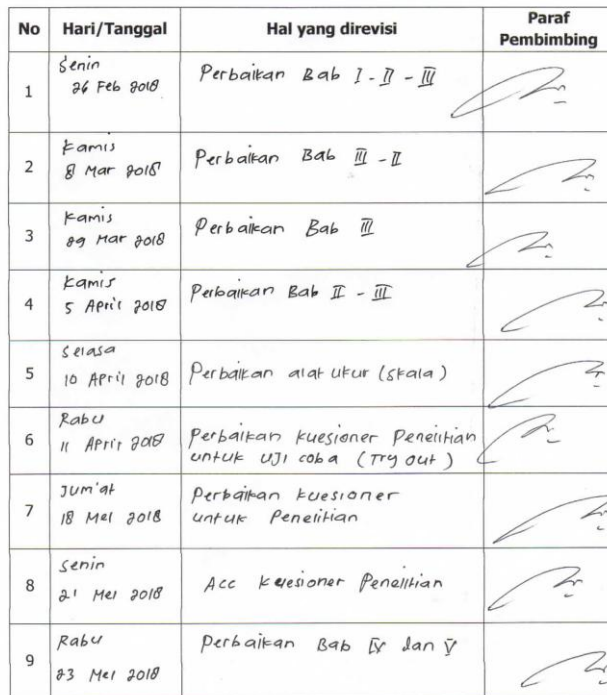 No Hari/Tanggal Hal yang direvisi Paraf
Pembimbing
1 Senin
26 Feb 2018 Perbaikan Bab I - II - III
2 Kamis
8 Mar 2018 Perbaikan Bab III - II
3 Kamis
29 Mar 2018 Perbaikan Bab III
4 Kamis
5 April 2018 Perbaikan Bab II - III
5 Selasa
10 April 2018 Perbaikan alat ukur (skala)
6 Rabu
11 April 2018 Perbaikan kuesioner Penelitian
untuk uji coba (Try out)
7 Jum'at
18 Mei 2018 Perbaikan kuesioner
untuk Penelitian
8 Senin
21 Mei 2018 Acc kuesioner Penelitian
9 Rabu
23 Mei 2018 Perbaikan Bab IV dan V